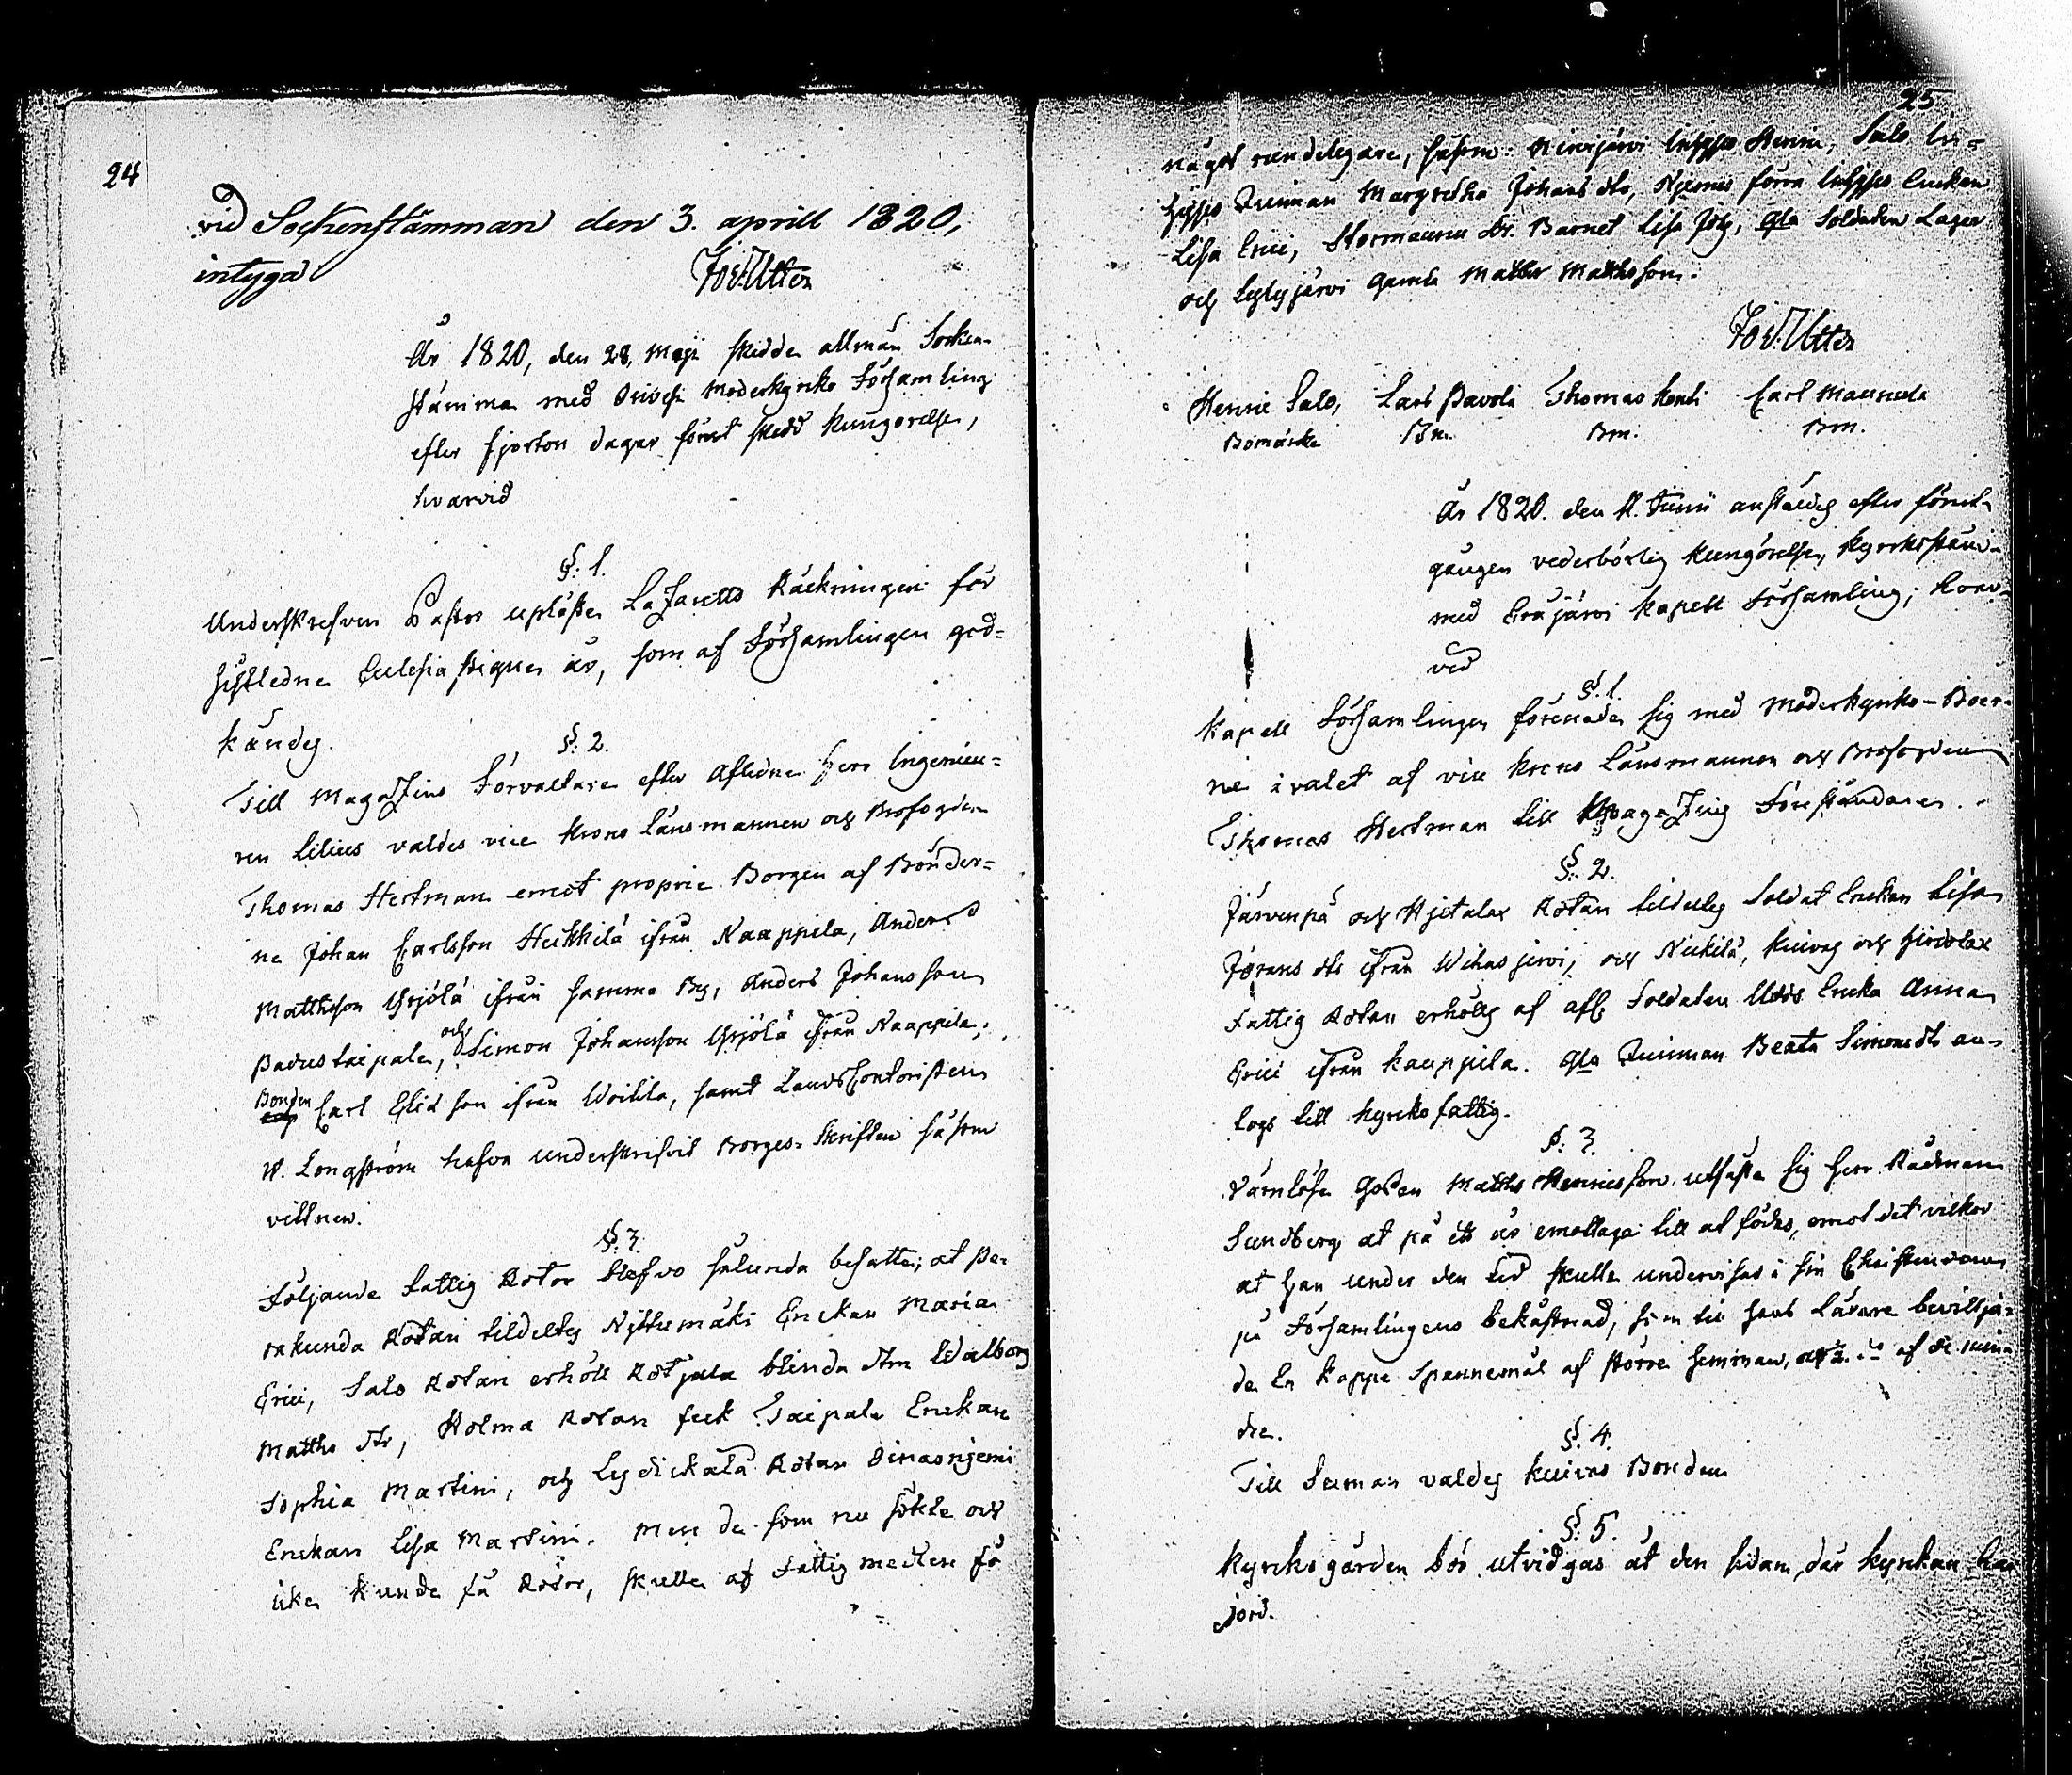 24
vid Sockenstämman den 3. aprill 1820,
intyga
Jos. Utter
År 1820, den 28. Maji skedde allmän Socken-
stämma med Orivesi Moderkyrko Församling
efter fjorton dagar förut skedd kungörelse,
hvarvid
§. 1.
Underskrefven Pastor upläste Lazaretts Räckningen för
sistledne Ecclesiastique år, som af Församlingen god-
kändes.
§. 2.
Till Magazins Förvaltare efter Aflidne Herr Ingenieu-
ren Lilius valdes vice Krono Länsmannen och Brofogden
Thomas Hertman emot proprie Borgen af Bönder-
ne Johan Carlsson Heikkilä ifrån Naappila, Anders
Matthsson Yrjölä ifrån samma By, Anders Johansson
Padustaipale, och Simon Johansson Yrjölä ifrån Naappila,
Bonden Carl Elid son ifrån Woitila, samt LandsContoristen
W. Longström hafva underskrifvit Borges-Skriften såsom
vittnen.
§. 3.
Följande Fattig Rotor blefvo sålunda besatte; at Pe-
rakunda Rotan tildeltes Nihtimäki Enckan Maria
Erici, Salo Rotan erhöll Rotjala blinda Walborg
Matths dtr, Holma Rotan feck Taipale Enckan
Sophia Martini, och LyDickälä Rotan Oinasnjemi
Enckan Lisa Martini. Men de som nu sökte och
icke kunde få Rotor, skulle af Fattig medlen få
25
något undelegare, såsom: Hirvijärvi Inhyses Henric, Salo In-
hyses Quinnan Margretha Johans dtr, förra Inhyses Enckan
Lisa Erici, Barnet Lisa Joh, Gla Soldaten Lager
och Lyhyjärvi Gamla Matts Mattsson.
Jos. Utter
Henric Salo, Lars Pavola Thomas Kouti Carl Maunula
Bomärke Bm. Bm. Bm.
År 1820. den 11. Junii anstäldes efter förut-
gången vederbörlig kungörelse, Kyrkostäm-
med Eräjärvi Kapell Församling; hvar-
vid
§. 1.
Kapell Församlingen förenade sig med Moderkyrko-Böer-
ne i valet af vice Krono Länsmannen och Brofogden
Thomas Hertman till Magazins Föreståndare.
§. 2.
Järvenpä och Hjetalax Rotan tildeltes Soldat Enckan Lisa
Jörans dtr ifrån Wihasjervi, och Nickilä, Kuivas och Hirvolax
Fattig Rotan erhölls af afl. Soldaten Encka Anna
Erici ifrån Kauppila. Gla Quinnan Beata Simons dtr an-
togs till Kyrcko fattig.
§. 3.
Värnlösa Gossen Matths Henricsson utfäste sig Herr Rådman
Sundberg at på ett år emottaga till at födas, emot det vilkor
at han under den tid skulle undervisas i sin Christendom
på Församlingens bekåstnad, som till hans lärare beviljа-
de En kappe Spannemål af större hemman, och ½ do af de min-
dre.
§. 4.
Till Sexman valdes Kuivas Bonden
§. 5.
Kyrckogården bör utvidgas åt den sidan, där kyrckan har
jord.